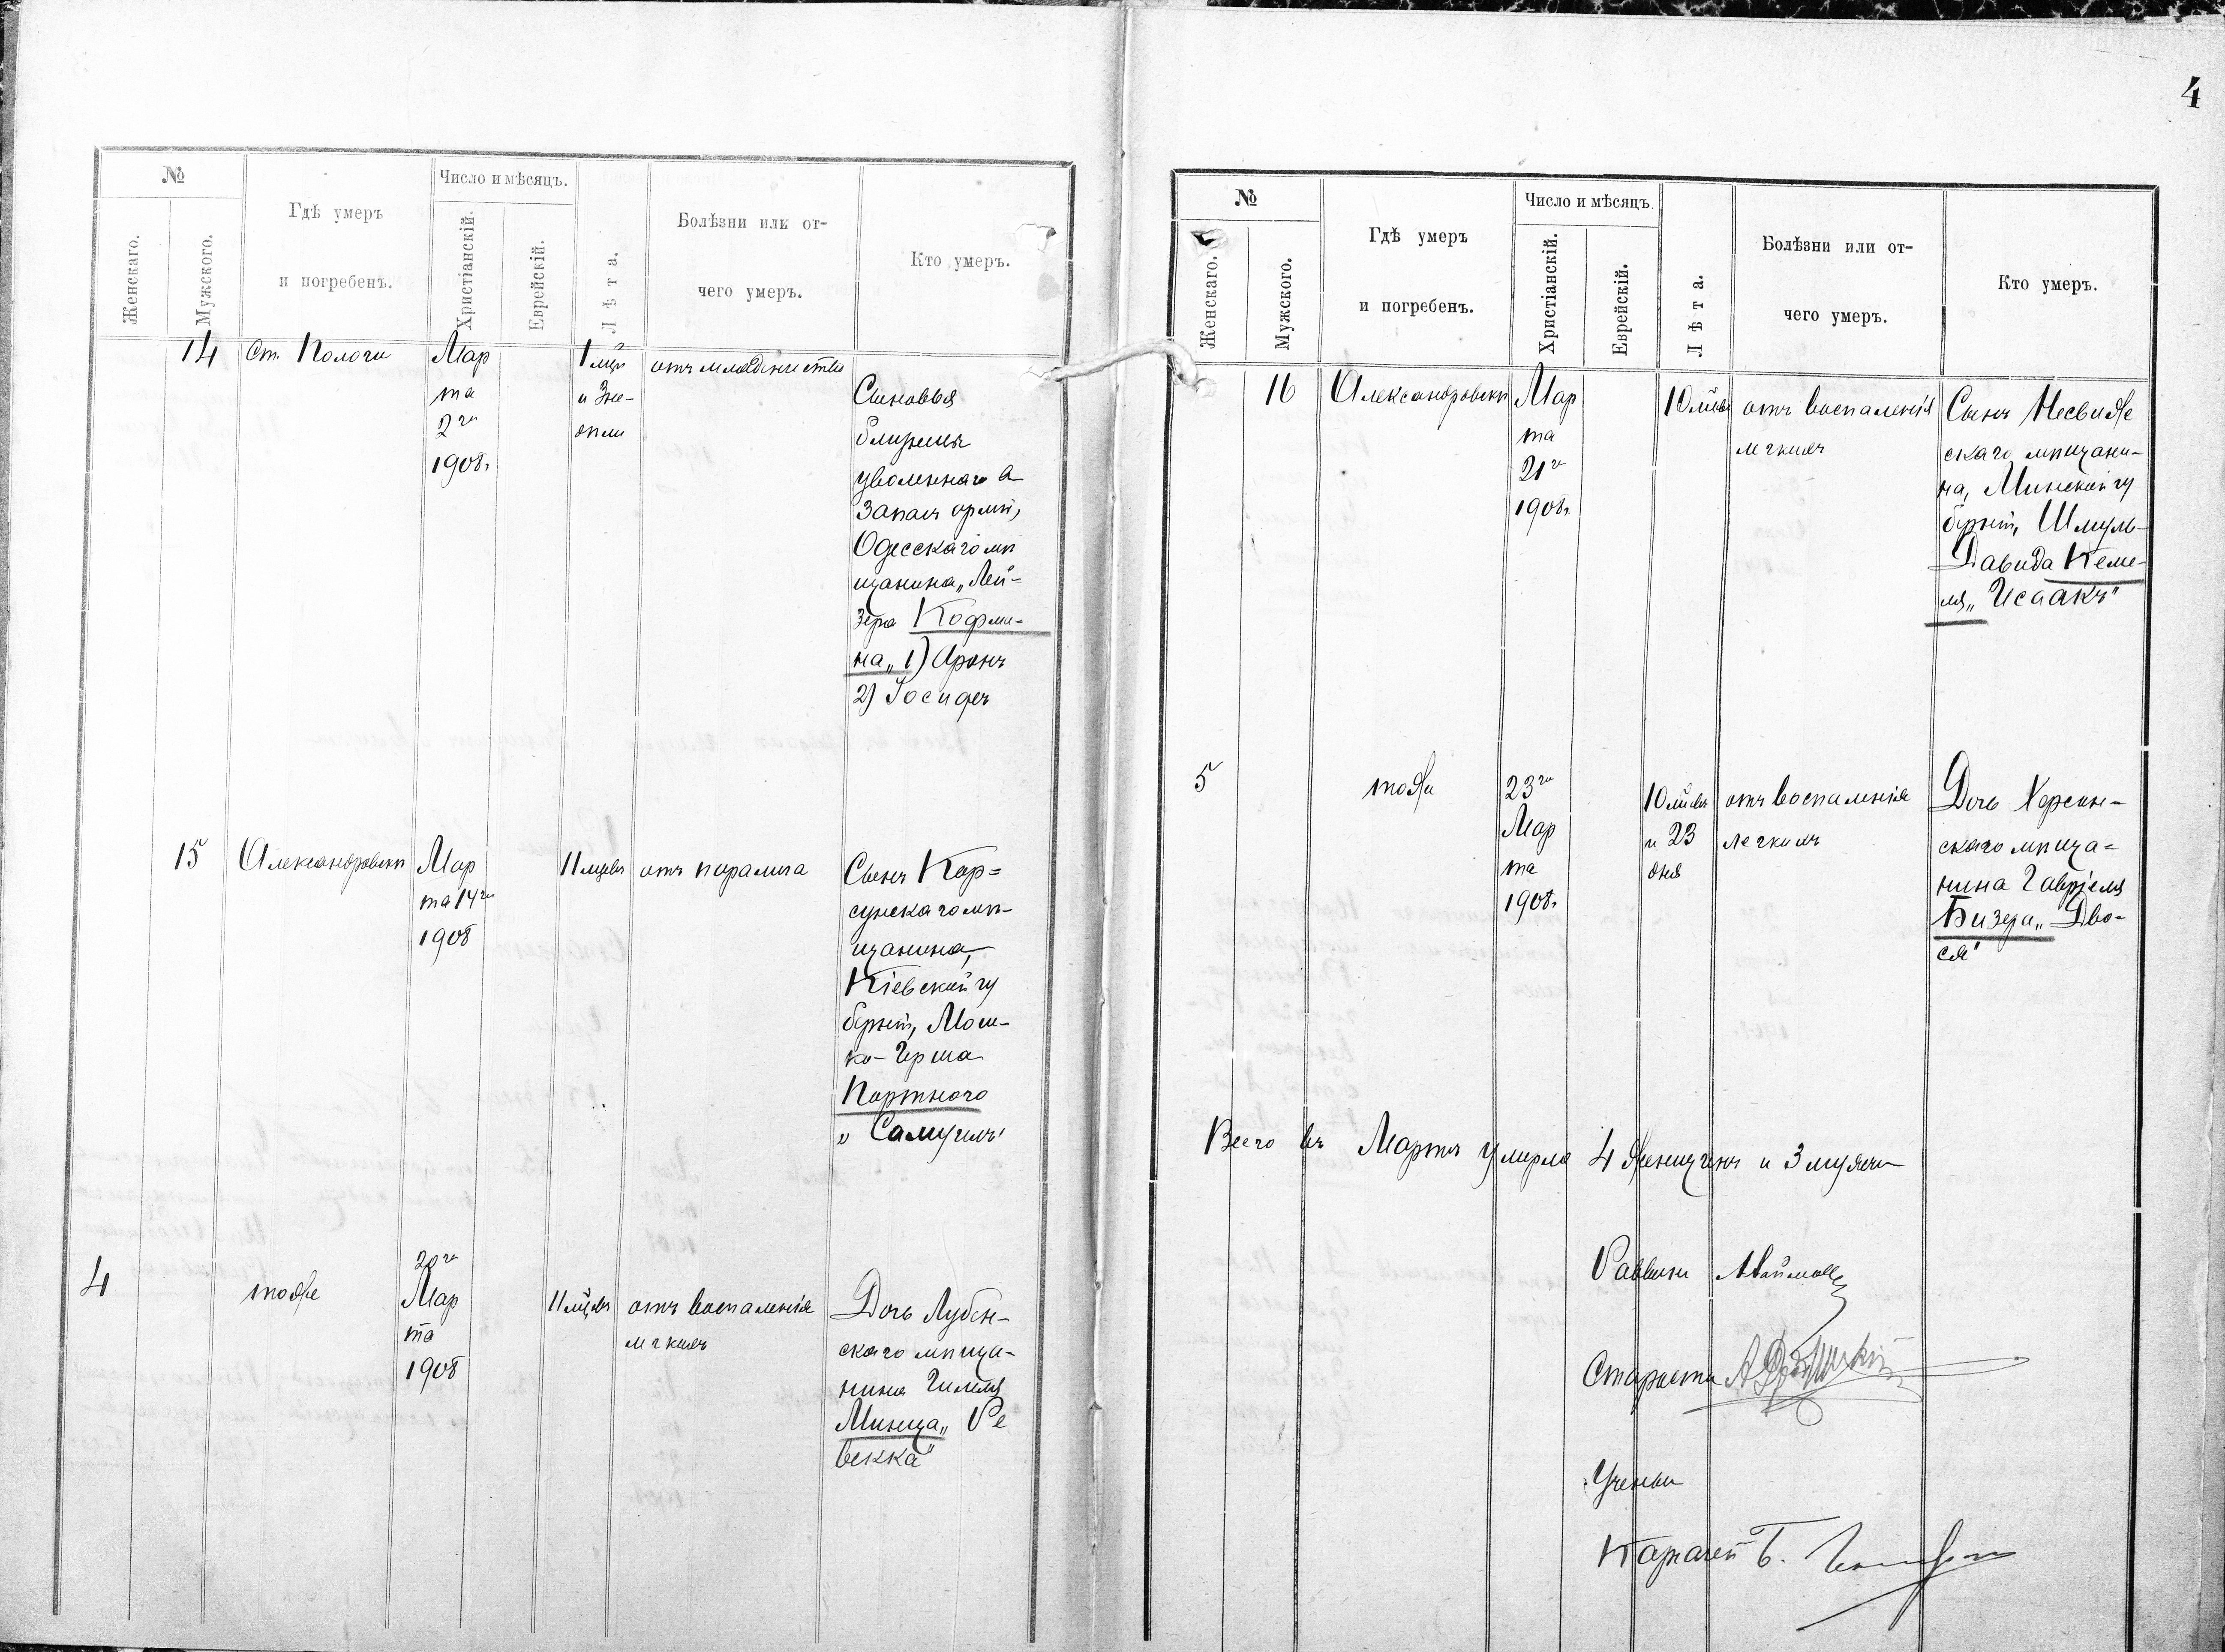 4
№
Женскаго.
Мужского.
Гдѣ умеръ
и погребенъ.
Число и мѣсяцъ.
Христіанскій.
Еврейскій.
Лѣта.
Болѣзни или от-
чего умеръ.
Кто умеръ.
14 Ст. Пологи
Мар
та
2го
1908г.
1 мцъ
и 3 не-
дѣли
отъ младенчества
Сыновья
близнецы
уволеннаго в
запасъ арміи,
Одесскаго мѣ
щанина „Лей-
зера Кофма-
на„ 1) Аронъ
2) Іосифъ
15 Александровскъ
Мар
та 14го
1908
11 мцевъ
отъ паралича
Сынъ Кор=
сунскаго мѣ-
щанина,
Кіевской гу
берніи, Мош-
ко-Герша
Портного
„Самуилъ"
4
тоже
20го
Мар
та
1908
11 мцевъ
отъ воспаленія
легкихъ
Дочь Лубен-
скаго мѣща-
нина Гилеля
Минца„ Ре
векка"
№
Женскаго.
Мужского.
Гдѣ умеръ
и погребенъ.
Число и мѣсяцъ.
Христіанскій.
Еврейскій.
Лѣта.
Болѣзни или от-
чего умеръ.
Кто умеръ.
16 Александровскъ
Мар
та
21го
1908г.
10 мцевъ
отъ воспаленія
легкихъ
Сынъ Несвиже
скаго мѣщани-
на, Минской гу
берніи, Шмуль-
Давида Кеме-
ля„ Исаакъ"
5
тоже
23го
Мар
та
1908г.
10 мцевъ
и 23
дня
отъ воспаленія
легкихъ
Дочь Херсон-
скаго мѣща=
нина Гавріеля
Бизера„ Дво-
ся"
Всего въ Мартѣ умерло 4 женщинъ и 3 мужчи
Раввинъ
Староста
Ученый
Казначей Б.